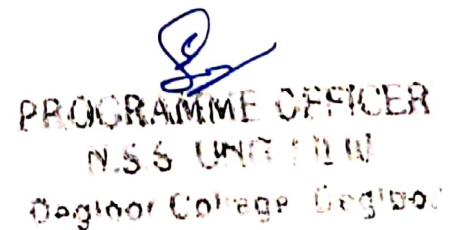 PROGRAMME OFFICER
N.S.S UNIT I II III
Degloor College Degloor